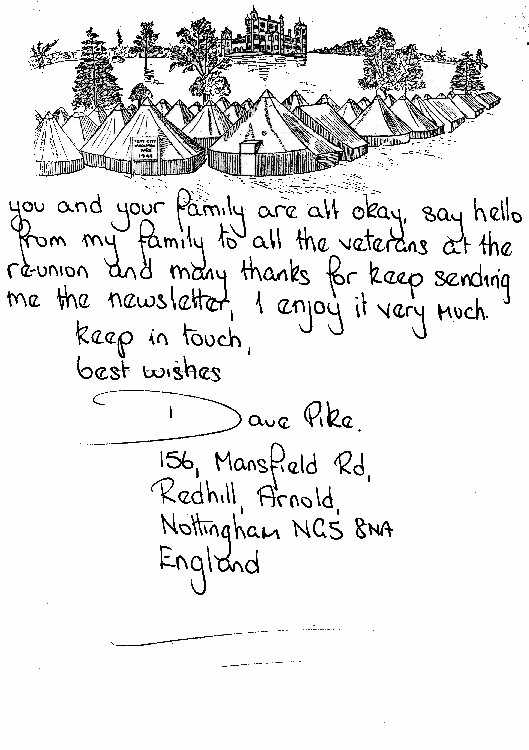 TENT CITY
1944
you and your family are all okay, say hello
from my family to all the veterans at the
re-union and many thanks for keep sending
me the newsletter, I enjoy it very much.
keep in touch,
best wishes
Dave Pike.
156, Mansfield Rd,
Redhill, Arnold,
Nottingham NG5 8NA
England